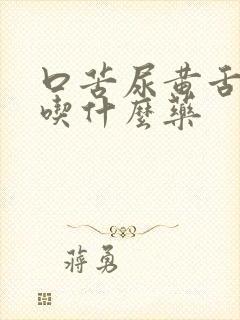 口苦尿黄舌
喫什麼藥
蔣勇